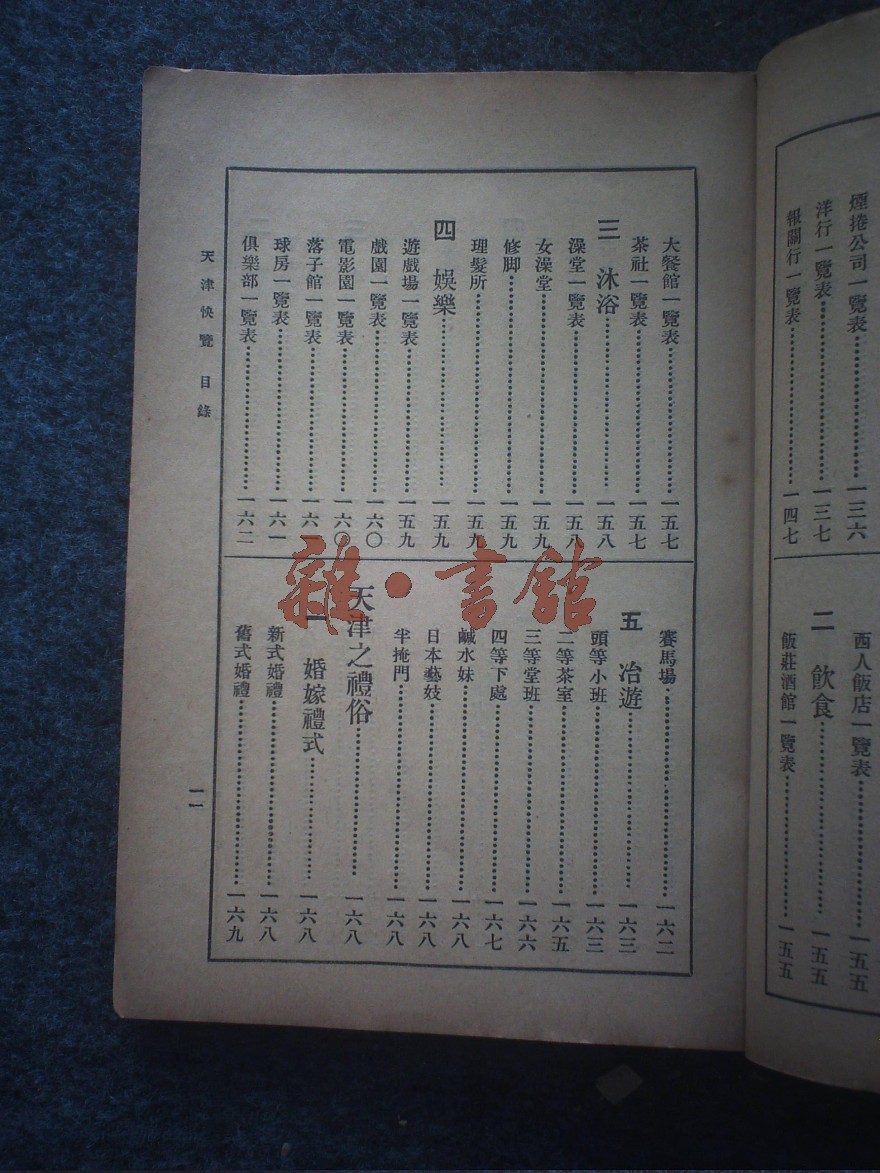 煙捲公司一覽表⋯⋯一三六
洋行一覽表⋯⋯一三七
報關行一覽表⋯⋯一四七
西人飯店一覽表⋯⋯一五五
二 飲食⋯⋯一五五
飯莊酒館一覽表⋯⋯一五五
大餐館一覽表⋯⋯一五七
茶社一覽表⋯⋯一五七
三 沐浴⋯⋯一五八
澡堂一覽表⋯⋯一五八
女澡堂⋯⋯一五九
修脚⋯⋯一五九
理髮所⋯⋯一五九
四 娛樂⋯⋯一五九
遊戲場一覽表⋯⋯一五九
戲園一覽表⋯⋯一六〇
電影園一覽表⋯⋯一六〇
落子館一覽表⋯⋯一六一
球房一覽表⋯⋯一六一
俱樂部一覽表⋯⋯一六二
賽馬場⋯⋯一六二
五 冶遊⋯⋯一六三
頭等小班⋯⋯一六三
二等茶室⋯⋯一六五
三等堂班⋯⋯一六六
四等下處⋯⋯一六七
鹹水妹⋯⋯一六八
日本藝妓⋯⋯一六八
半掩門⋯⋯一六八
天津之禮俗⋯⋯一六八
一 婚嫁禮式⋯⋯一六八
新式婚禮⋯⋯一六八
舊式婚禮⋯⋯一六九
天津快覽 目錄
一一
雜·書館